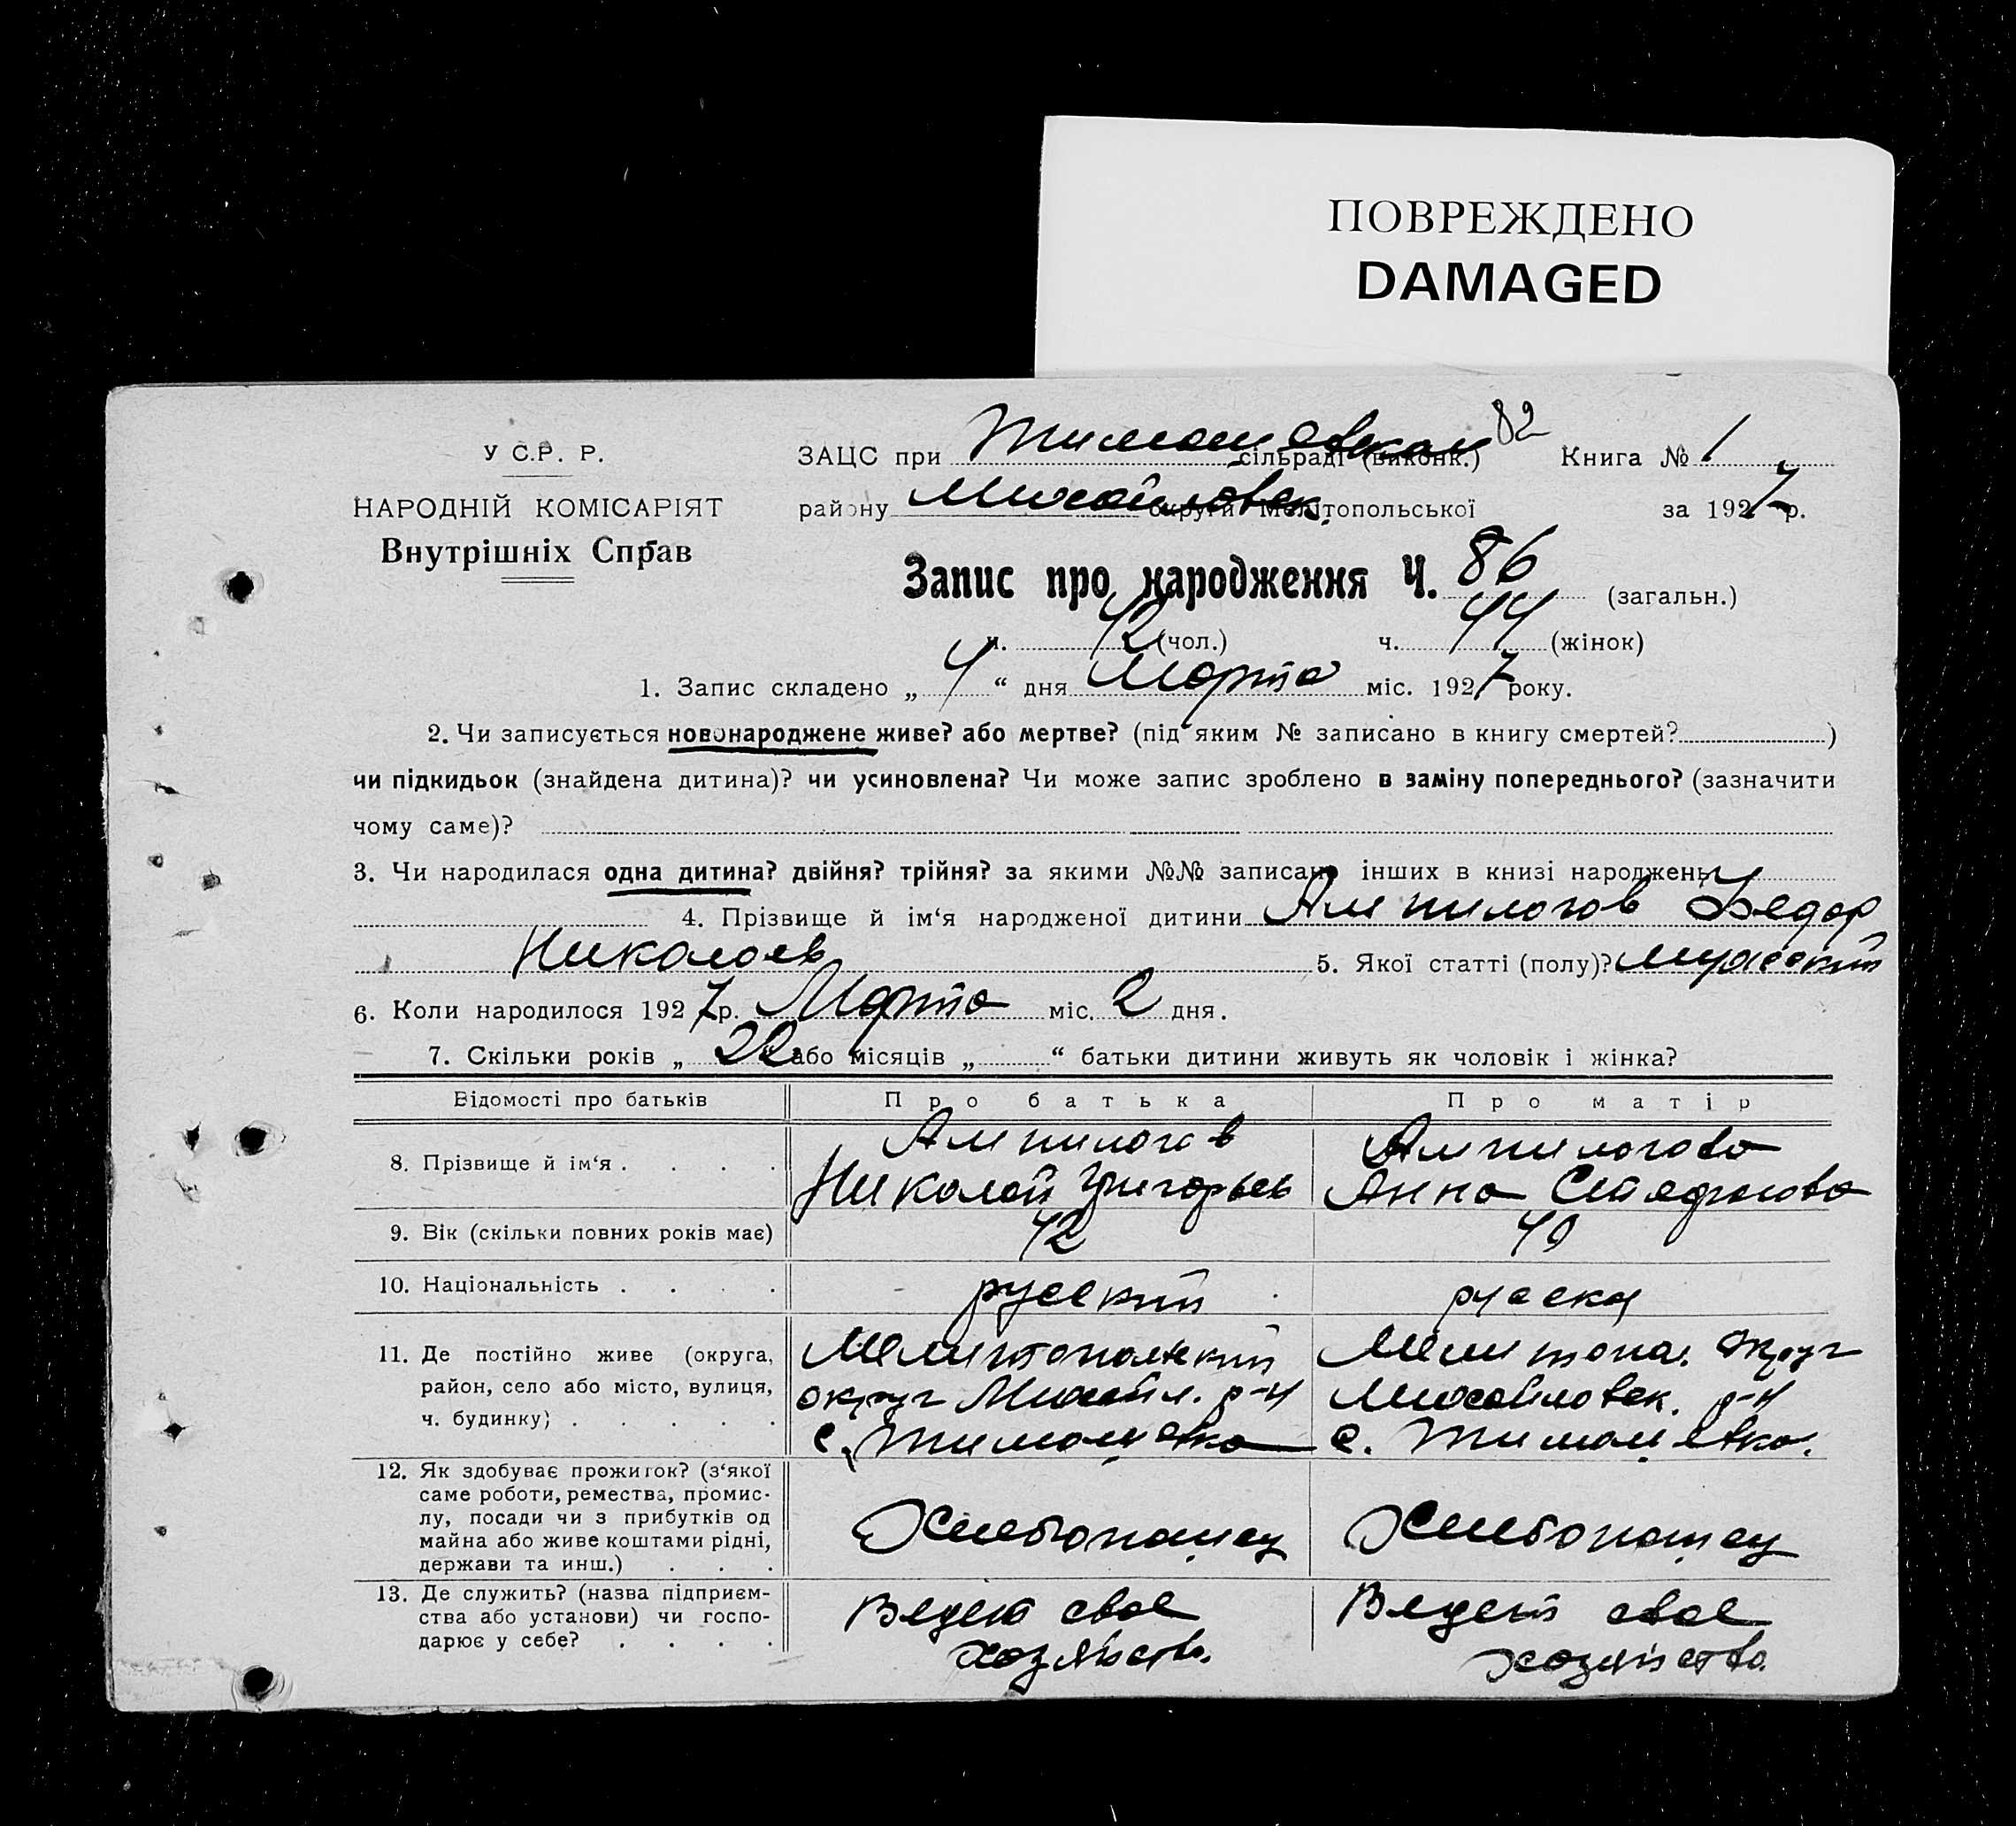 ПОВРЕЖДЕНО
DAMAGED
82
У С.Р. Р.
НАРОДНІЙ КОМІСАРІЯТ
Внутрішніх Справ
ЗАЦС при Тимошевском сільраді (виконк.) Книга № 1
району Михайловск. округи Мелітопольської за 1927 р.
Запис про народження Ч. 86 (загальн.)
ч. 42 (чол.) ч. 44 (жінок)
1. Запис складено „ 4 “ дня Марта міс. 1927 року.
2. Чи записується новонароджене живе? або мертве? (під яким № записано в книгу смертей? )
чи підкидьок (знайдена дитина)? чи усиновлена? Чи може запис зроблено в заміну попереднього? (зазначити
чому саме)?
3. Чи народилася одна дитина? двійня? трійня? за якими №№ записано інших в книзі народжень
4. Прізвище й ім‘я народженої дитини Ампилогов Федор
Николаев 5. Якої статті (полу)? мужский
6. Коли народилося 1927 р. Марта міс. 2 дня.
7. Скільки років „ 22 “ або місяців „ “ батьки дитини живуть як чоловік і жінка?
Відомості про батьків Про батька Про матір
8. Прізвище й ім‘я . . . . Ампилогов Николай Григорьев Ампилогова Анна
9. Вік (скільки повних років має) 42 40
10. Національність . . . . русский русская
11. Де постійно живе (округа, Мелитопольский Мелитопол. округ
район, село або місто, вулиця, округ Михайл. р-н Михайловск. р-н
ч. будинку) . . . . . с. Тимошевка с. Тимошевка.
12. Як здобуває прожиток? (з‘якої
саме роботи, ремества, промис-
лу, посади чи з прибутків од Хлебопашец Хлебопашец
майна або живе коштами рідні,
держави та инш.) . . .
13. Де служить? (назва підприєм-
ства або установи) чи госпо- Ведет свое Ведет свое
дарює у себе? . . . . хозяйство. хозяйство.